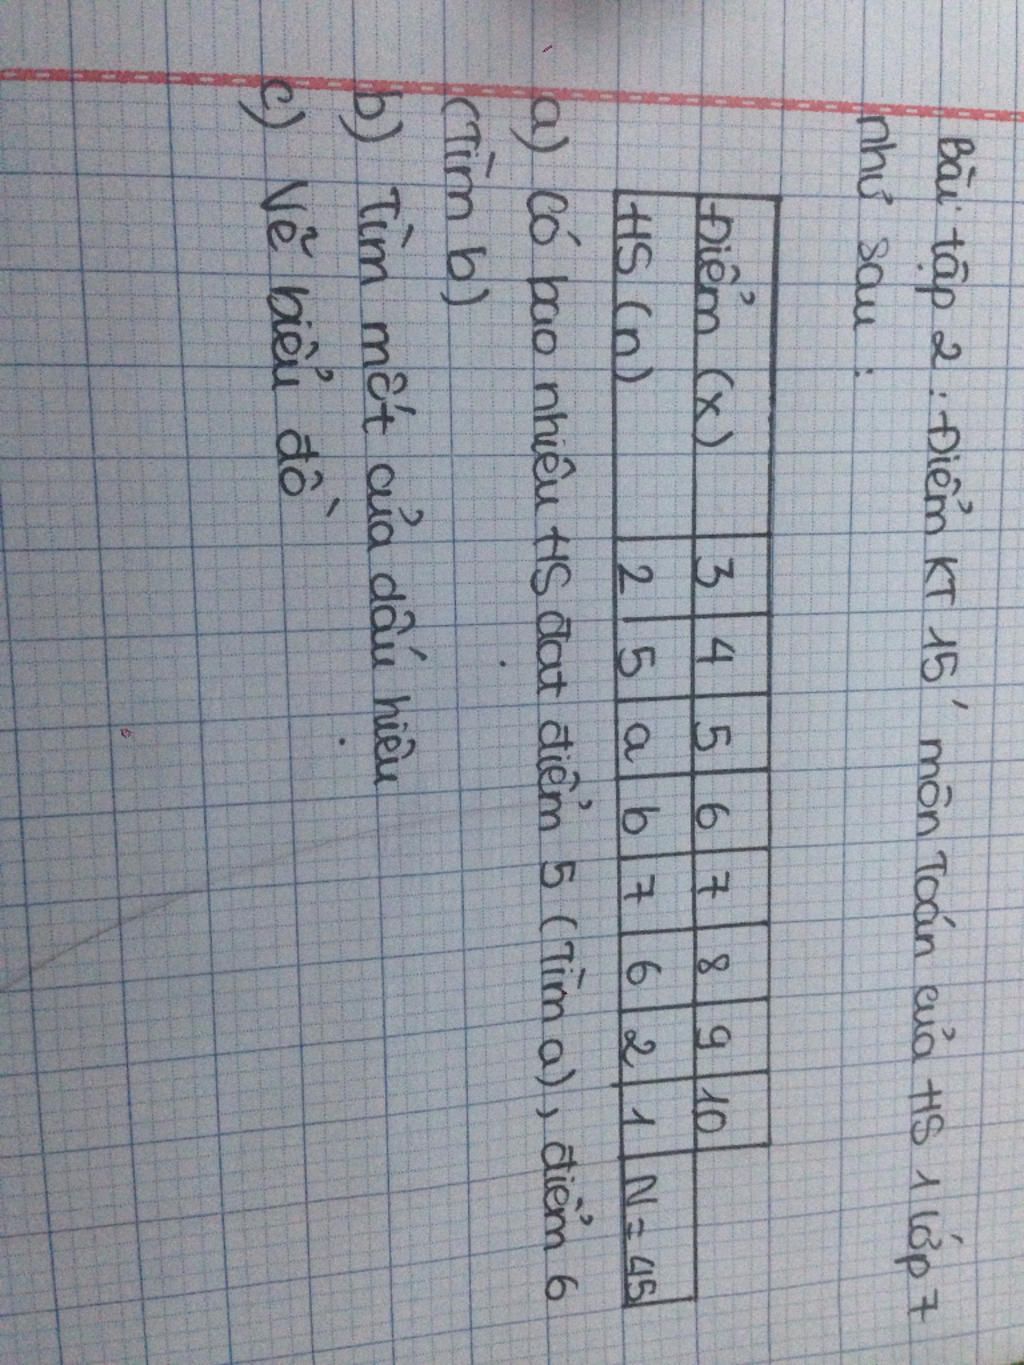 Bài tập 2: Điểm KT 15' môn Toán của HS 1 lớp 7
như sau:
Điểm (x) 3 4 5 6 7 8 9 10
HS (n) 2 5 a b 7 6 2 1 N = 45
a) Có bao nhiêu HS đạt điểm 5 (Tìm a), điểm 6
(Tìm b)
b) Tìm mốt của dấu hiệu
c) Vẽ biểu đồ